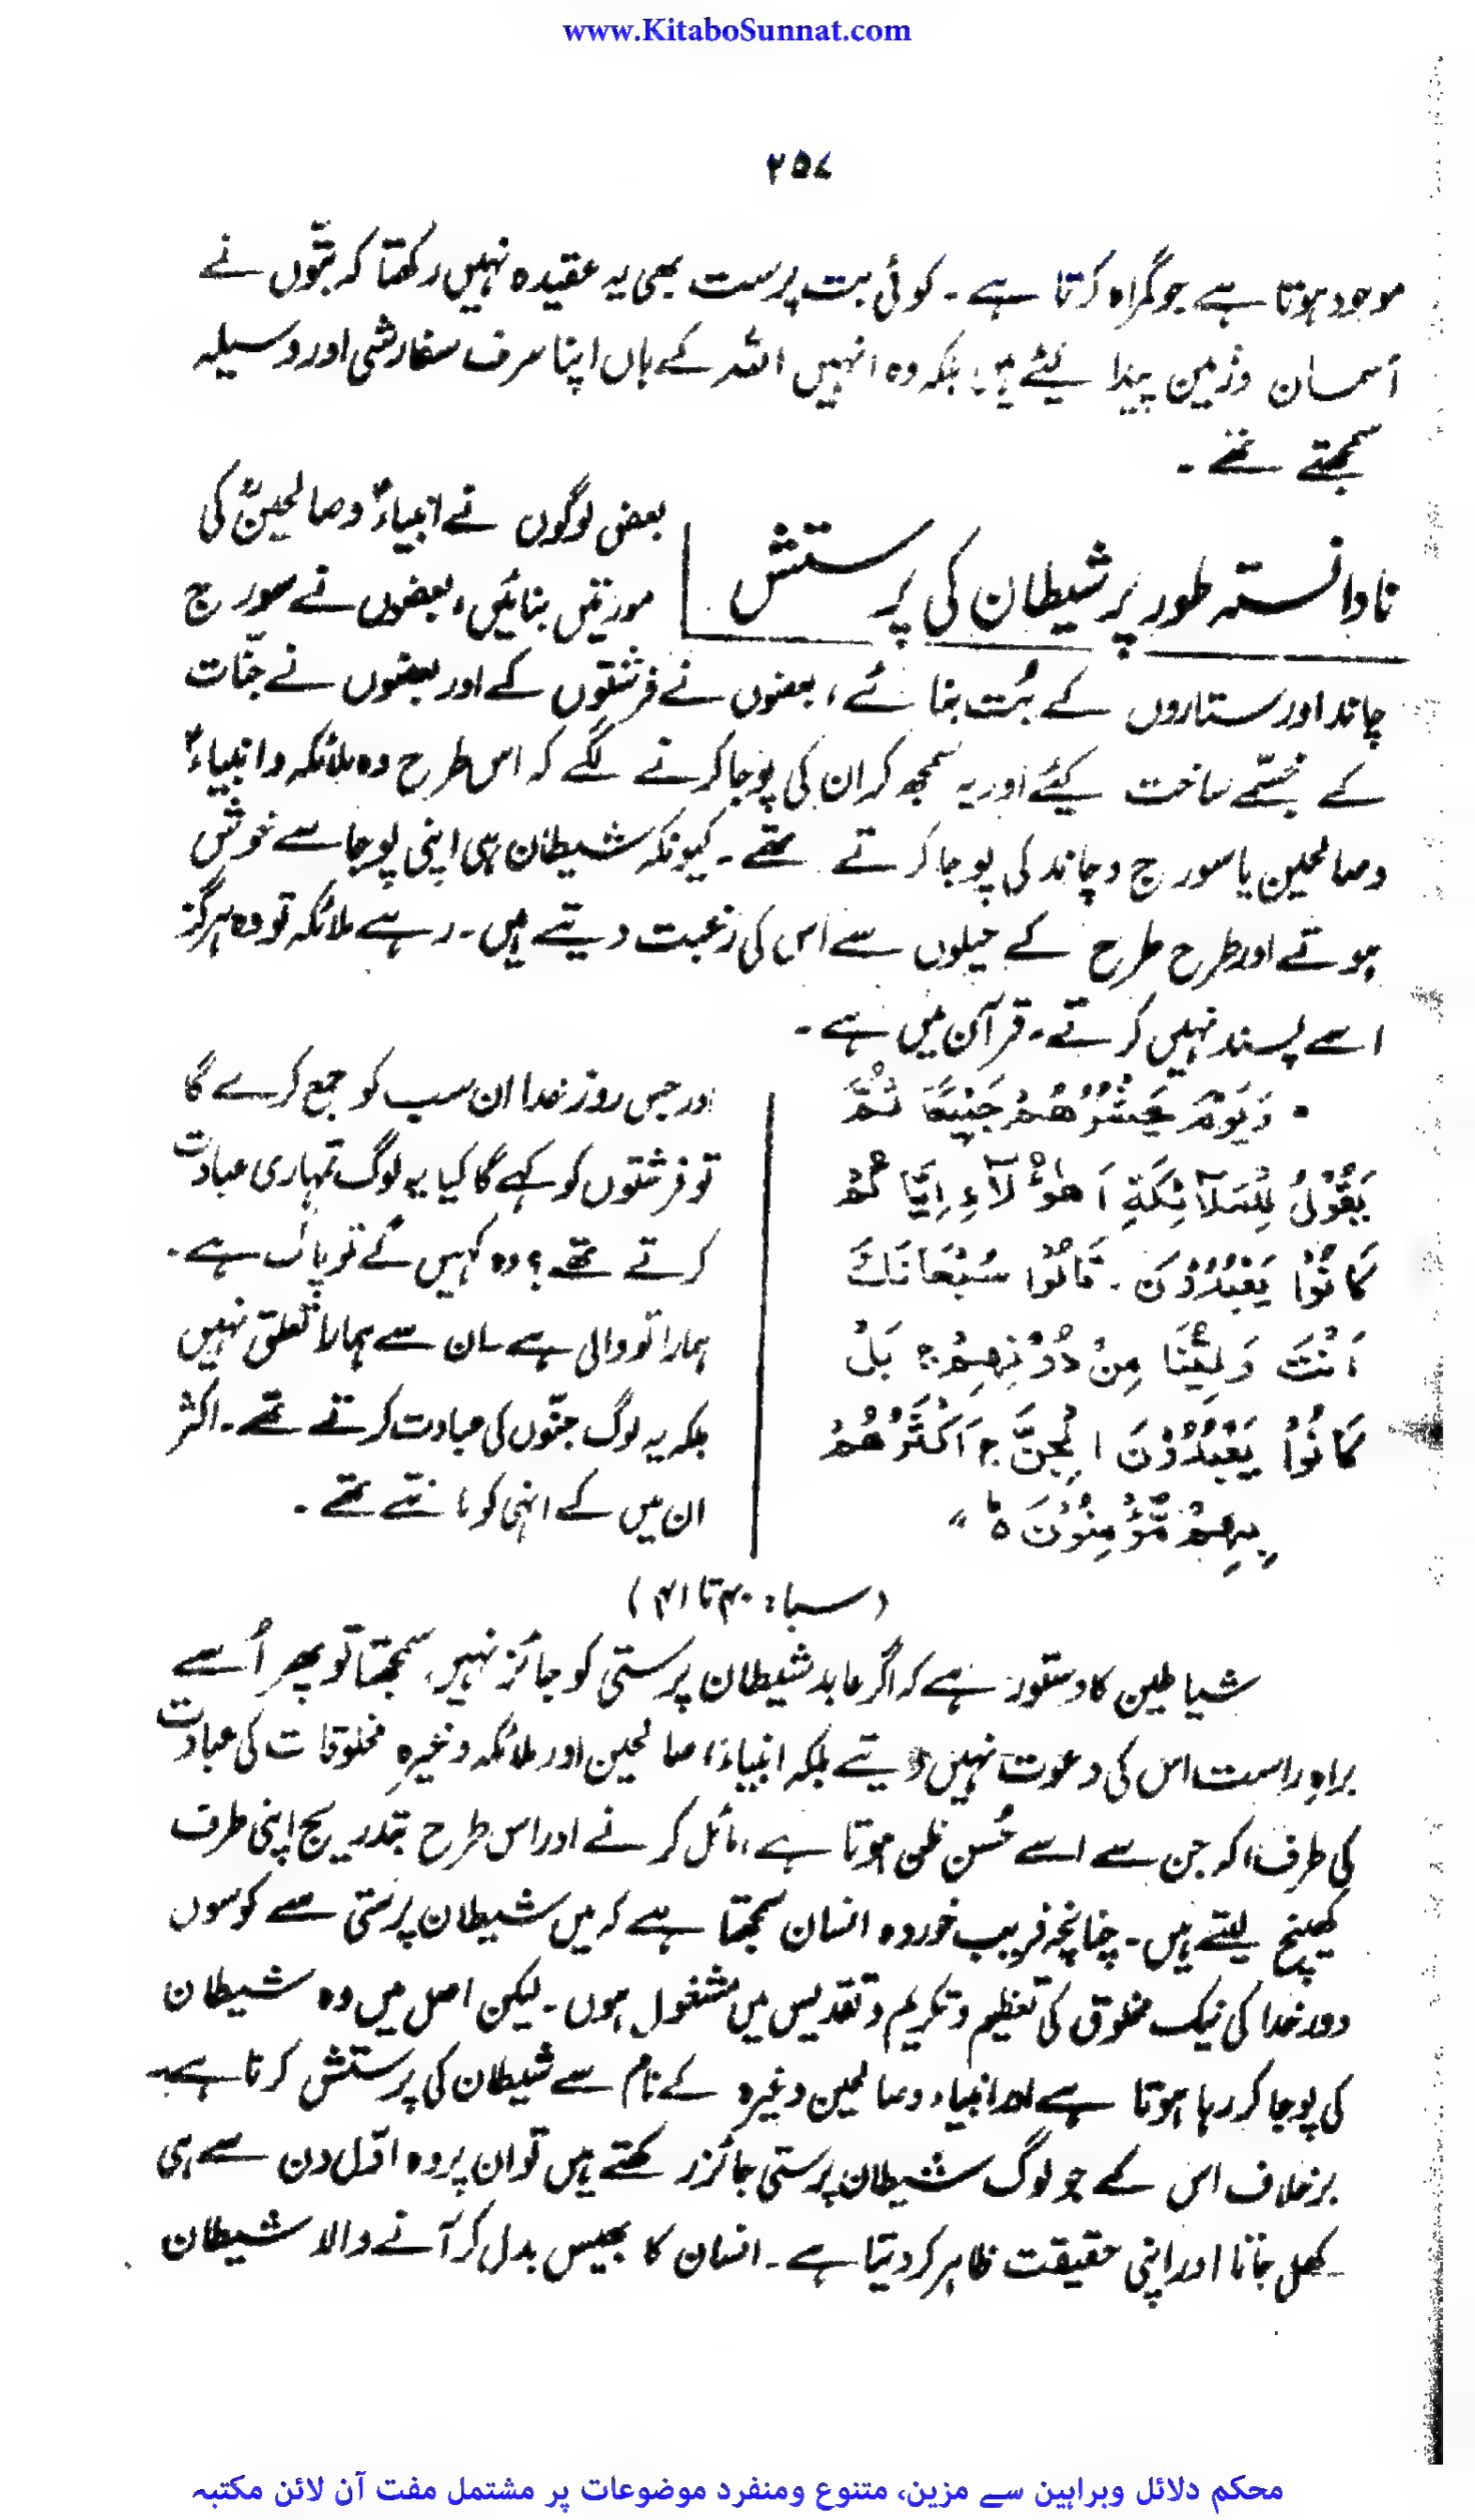 www.KitaboSunnat.com
۲۵۷
موجود ہوتا ہے جو گمراہ کرتا ہے۔ کوئی بت پرست بھی یہ عقیدہ نہیں رکھتا کہ بتّوں نے
آسمان وزمین پیدا کیئے ہیں بلکہ وہ انہیں اللہ کے ہاں اپنا صرف سفارشی اور وسیلہ
سمجھتے تھے۔
نادانستہ طور پر شیطان کی پرستش
بعض لوگوں نے انبیاءؑ وصالحینؒ کی
مورتیں بنائیں، بعضوں نے سورج
چاند اور ستاروں کے بُت بنائے، بعضوں نے فرشتوں کے اور بعضوں نے جنّات
کے مجسّمے ساخت کیئے اور یہ سمجھ کر ان کی پوجا کرنے لگے کہ اس طرح وہ ملائکہ وانبیاءؑ
وصالحین یا سورج وچاند کی پوجا کرتے تھے۔ کیونکہ شیطان ہی اپنی پوجا سے خوش
ہوتے اور طرح طرح کے حیلوں سے اس کی رغبت دیتے ہیں۔ رہے ملائکہ تو وہ ہرگز
اسے پسند نہیں کرتے۔ قرآن میں ہے۔
وَيَوْمَ يَحْشُرُهُمْ جَمِيْعًا ثُمَّ
يَقُوْلُ لِلْمَلَآئِكَةِ اَهٰؤُلَآءِ اِيَّاكُمْ
كَانُوْا يَعْبُدُوْنَ۔ قَالُوْا سُبْحَانَكَ
اَنْتَ وَلِيُّنَا مِنْ دُوْنِهِمْ ج بَلْ
كَانُوْا يَعْبُدُوْنَ الْجِنَّ ج اَكْثَرُهُمْ
بِهِمْ مُّؤْمِنُوْنَ ہ ؕ "
اور جس روز خدا ان سب کو جمع کرے گا
تو فرشتوں کو کہے گا کیا یہ لوگ تمہاری عبادت
کرتے تھے؟ وہ کہیں گے تو پاک ہے۔
ہمارا تو والی ہے۔ ان سے ہمارا تعلق نہیں
بلکہ یہ لوگ جنّوں کی عبادت کرتے تھے۔ اکثر
ان میں کے انہی کو مانتے تھے۔
(سباء: ۴۰ تا ۴۱)
شیاطین کا دستور ہے کہ اگر عابد شیطان پرستی کو جائز نہیں سمجھتا تو پھر اُسے
براہِ راست اس کی دعوت نہیں دیتے بلکہ انبیاء، صالحین اور ملائکہ وغیرہ مخلوقات کی عبادت
کی طرف، کہ جن سے اسے حُسن ظن ہوتا ہے، مائل کرنے اور اس طرح بتدریج اپنی طرف
کھینچ لیتے ہیں۔ چنانچہ فریب خوردہ انسان سمجھتا ہے کہ میں شیطان پرستی سے کوسوں
دور خدا کی نیک مخلوق کی تعظیم وتکریم وتقدیس میں مشغول ہوں۔ لیکن اصل میں وہ شیطان
کی پوجا کر رہا ہوتا ہے اور انبیاء وصالحین وغیرہ کے نام سے شیطان کی پرستش کرتا ہے۔
برخلاف اس کے جو لوگ شیطان پرستی جائز رکھتے ہیں تو ان پر وہ اوّل دن سے ہی
کھل جاتا اور اپنی حقیقت ظاہر کر دیتا ہے۔ انسان کا بھیس بدل کر آنے والا شیطان
محکم دلائل وبراہین سے مزین، متنوع ومنفرد موضوعات پر مشتمل مفت آن لائن مکتبہ